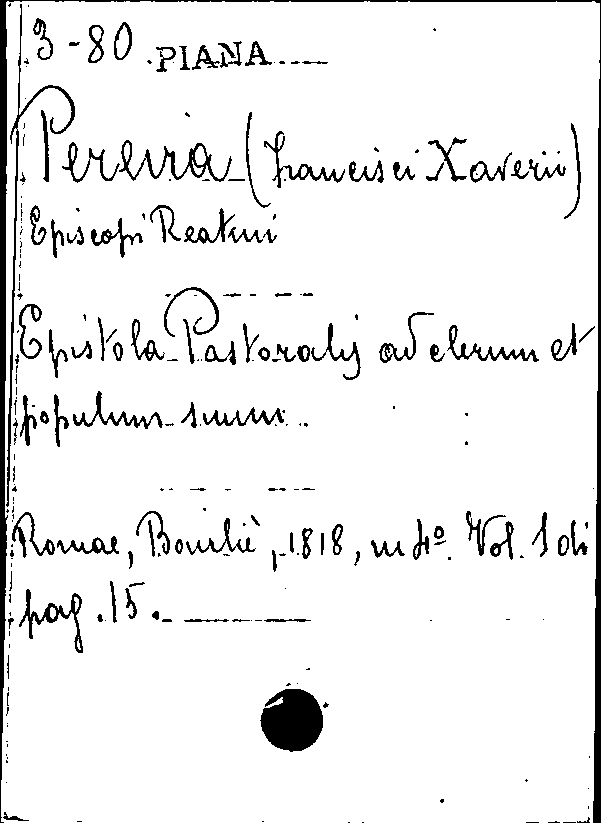 3-80 PIANA
Pereira (Francisci Xaverii)
Episcopi Reatini
Epistola Pastoralis ad clerum et
populum suum.
Romae, Bourliè, 1818, in 4º. Vol. 1 di
pag. 15.